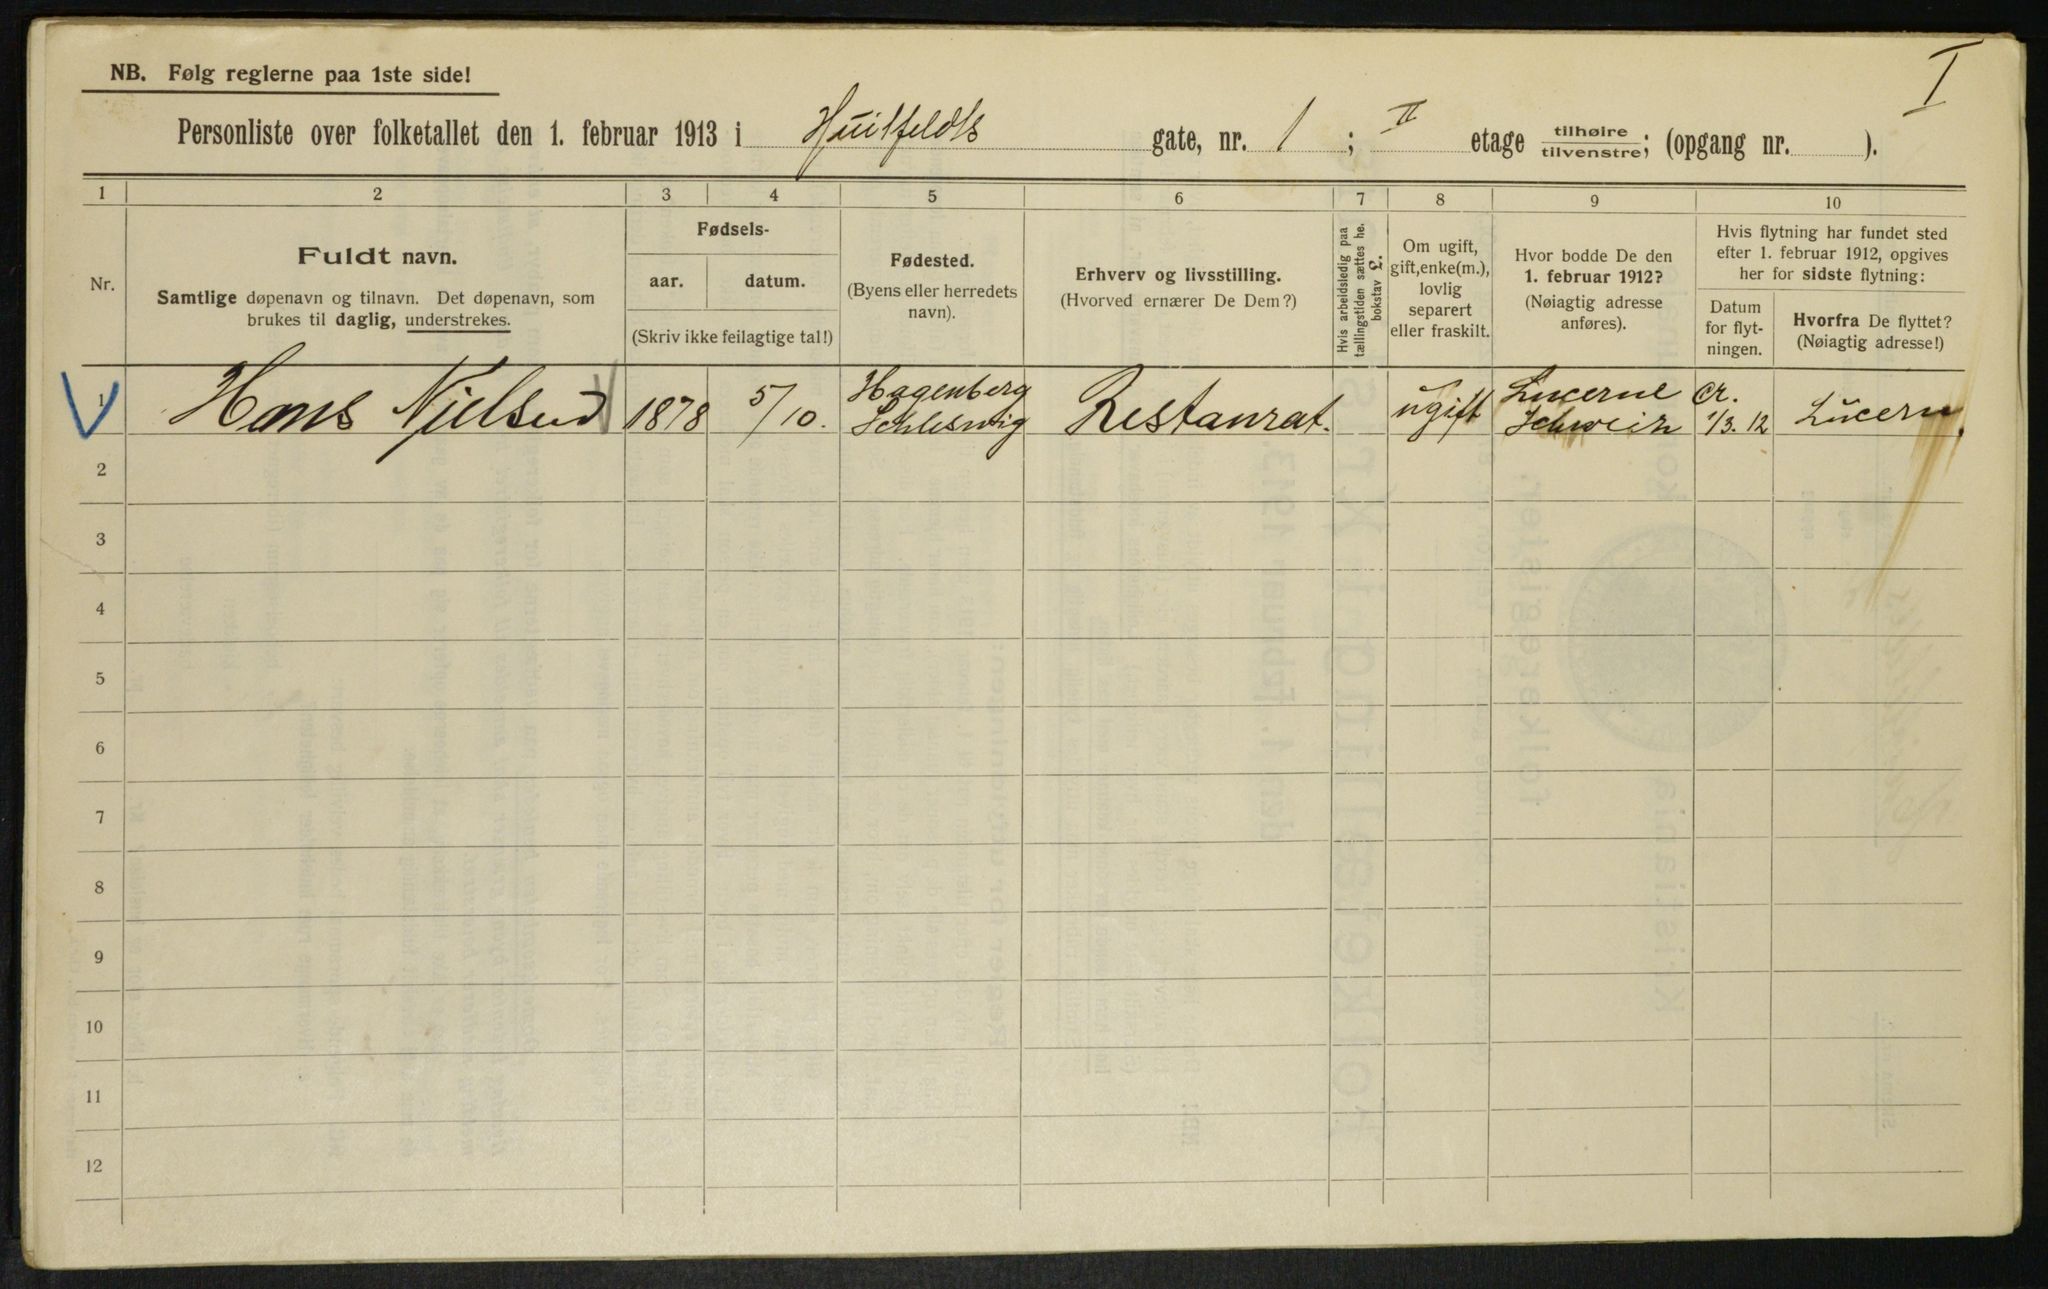 I
NB. Følg reglerne paa 1ste side!
Personliste over folketallet den 1. februar 1913 i Huitfeldts gate, nr. 1 ; II etage tilhøire tilvenstre; (opgang nr. ).
1 2 3 4 5 6 7 8 9 10
Nr.
Fuldt navn.
Samtlige døpenavn og tilnavn. Det døpenavn, som
brukes til daglig, understrekes.
Fødsels-
aar. datum.
(Skriv ikke feilagtige tal!)
Fødested.
(Byens eller herredets
navn).
Erhverv og livsstilling.
(Hvorved ernærer De Dem?)
Hvis arbeidsledig paa
tællingstiden sættes he.
bokstav L.
Om ugift,
gift, enke(m.),
lovlig
separert
eller fraskilt.
Hvor bodde De den
1. februar 1912?
(Nøiagtig adresse
anføres).
Hvis flytning har fundet sted
efter 1. februar 1912, opgives
her for sidste flytning:
Datum
for flyt-
ningen.
Hvorfra De flyttet?
(Nøiagtig adresse!)
1 Hans Njelsen 1878 5/10. Hagenberg Schleswig Restaurat. ugift Lucerne Schweiz cr. 1/3. 12 Lucern
2
3
4
5
6
7
8
9
10
11
12